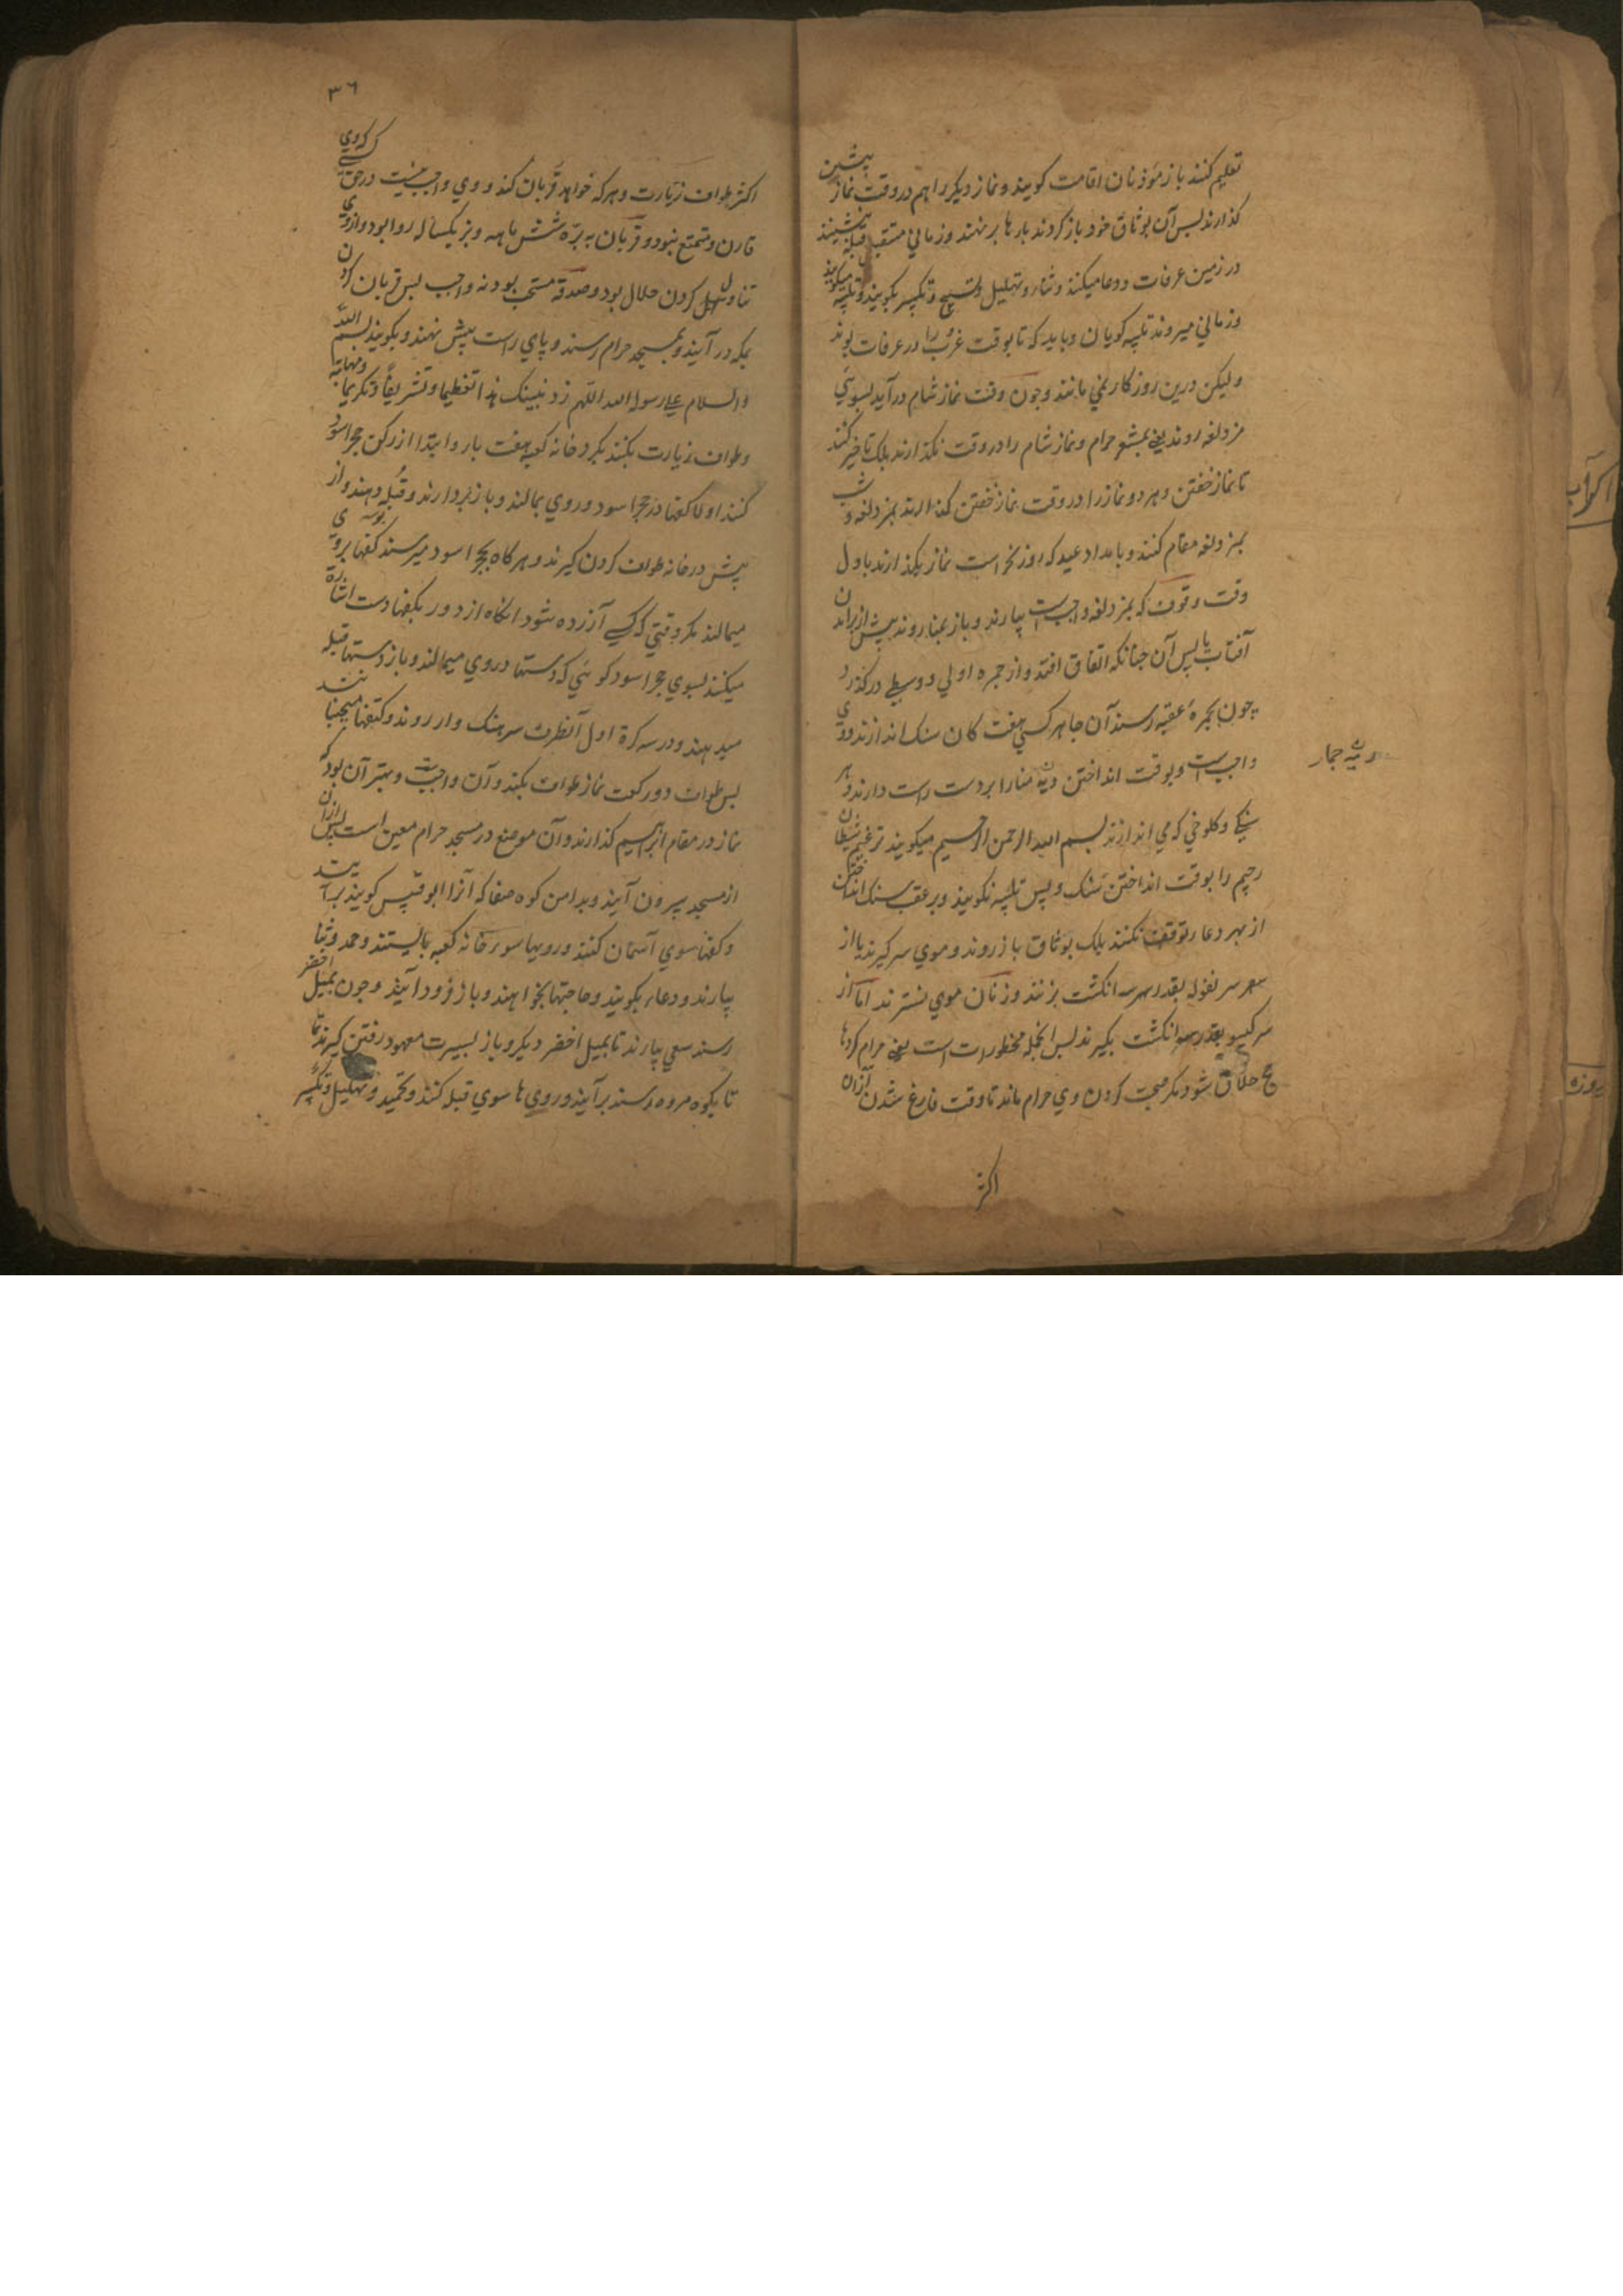 تعلیم کنند باز مؤذنان اقامت کویند و نماز دیکر را هم در وقت نماز پیشین
کذارند پس آن بوثاق خود باز کردند بارها برنهند و زمانی مستقبل قبله بنشینند
در زمین عرفات و دعا میکنند و ثنا و تهلیل و تسبیح و تکبیر بکویند و تلبیه میکویند
و زمانی میروند تلبیه کویان و باید که تا بوقت غروب را در عرفات بوند
و لیکن درین روزکار نمی مانند و چون وقت نماز شام درآید بسوی
مزدلفه روند یعنی بمشعر حرام و نماز شام را در وقت نکذارند بلک تاخیر کنند
تا نماز خفتن و هر دو نماز را در وقت نماز خفتن کذارند بمزدلفه و شب
بمزدلفه مقام کنند و بامداد عید که روز نحر است نماز بکذارند باول
وقت وقوف که بمزدلفه واجبست بیارند و باز بمنا روند پیش از برامدن
آفتاب یا پس آن چنانکه اتفاق افتد و از جمره اولی و وسطی درکذرد
چون بجمرهٔ عقبه رسند آن جا هر کسی هفت کان سنک اندازند و وی
رمیه جمار
واجبست و بوقت انداختن منا را بر دست راست دارند و هر
سنکی و کلوخی که می اندازند بسم الله الرحمن الرحیم میکویند ترغیم شیطان
رجیم را بوقت انداختن سنک و پس تلبیه نکویند و بر عقب سنک انداختن
از بهر دعا توقف نکنند بلک بوثاق باز روند و موی سر کیرند یا از
سر بقدر سه انکشت بزنند و زنان موی نسترند اما از
سر کیسو بقدر انکشت بکیرند پس انجمله محظورات است یعنی حرام کردها
حج حلال شود مکر صحبت کردن وی حرام ماند تا وقت فارغ شدن از ان
اکثر
۳۶
اکثر طواف زیارت و هر که خواهد قربان کند و وی واجب نیست در حق کسی که وی
قارن و متمتع نبود و قربان به برّه شش ماهه و بز یکساله روا بود و از وی
تناول کردن حلال بود و صدقه مستحب بود نه واجب پس قربان کردن
بمکه درآیند و بمسجد حرام رسند و پای راست پیش نهند و بکویند بسم الله
والسلام علی رسول الله اللهم زد بیتک هذا تعظیما و تشریفا و تکریما و مهابة
و طواف زیارت بکنند بکرد خانه کعبه هفت بار و ابتدا از رکن حجر اسود
کنند اولا کفها در حجر اسود و روی بمالند و باز بردارند و قبله دهند و از
پیش در خانه طواف کردن کیرند و هر کاه بحجر اسود میرسند کفها بروی
میمالند مکر وقتی که کسی آزرده شود انکاه از دور بکفها دست اشارة
میکنند بسوی حجر اسود کوئی که دستها در وی میمالند و باز دستها قبله
میدهند و در سه کرة اول آنطرف سرهنک وار روند و کتفها میجنبانند
پس طواف دو رکعت نماز طواف بکنند و آن واجبست و بهتر آن بود که
نماز در مقام ابرهیم کذارند و آن موضع در مسجد حرام معین است پس از ان
از مسجد بیرون آیند و بدامن کوه صفا که آنرا ابو قبیس کویند برآیند
و کفها سوی آسمان کنند و رویها سوی خانه کعبه بایستند و حمد و ثنا
بیارند و دعاء بکویند و حاجتها بخواهند و باز فرود آیند و چون بمیل اخضر
رسند سعی بیارند تا بمیل اخضر دیکر و باز بسیرت معهود رفتن کیرند تا
تا بکوه مروه رسند برآیند و رویها سوی قبله کنند و تحمید و تهلیل و تکبیر